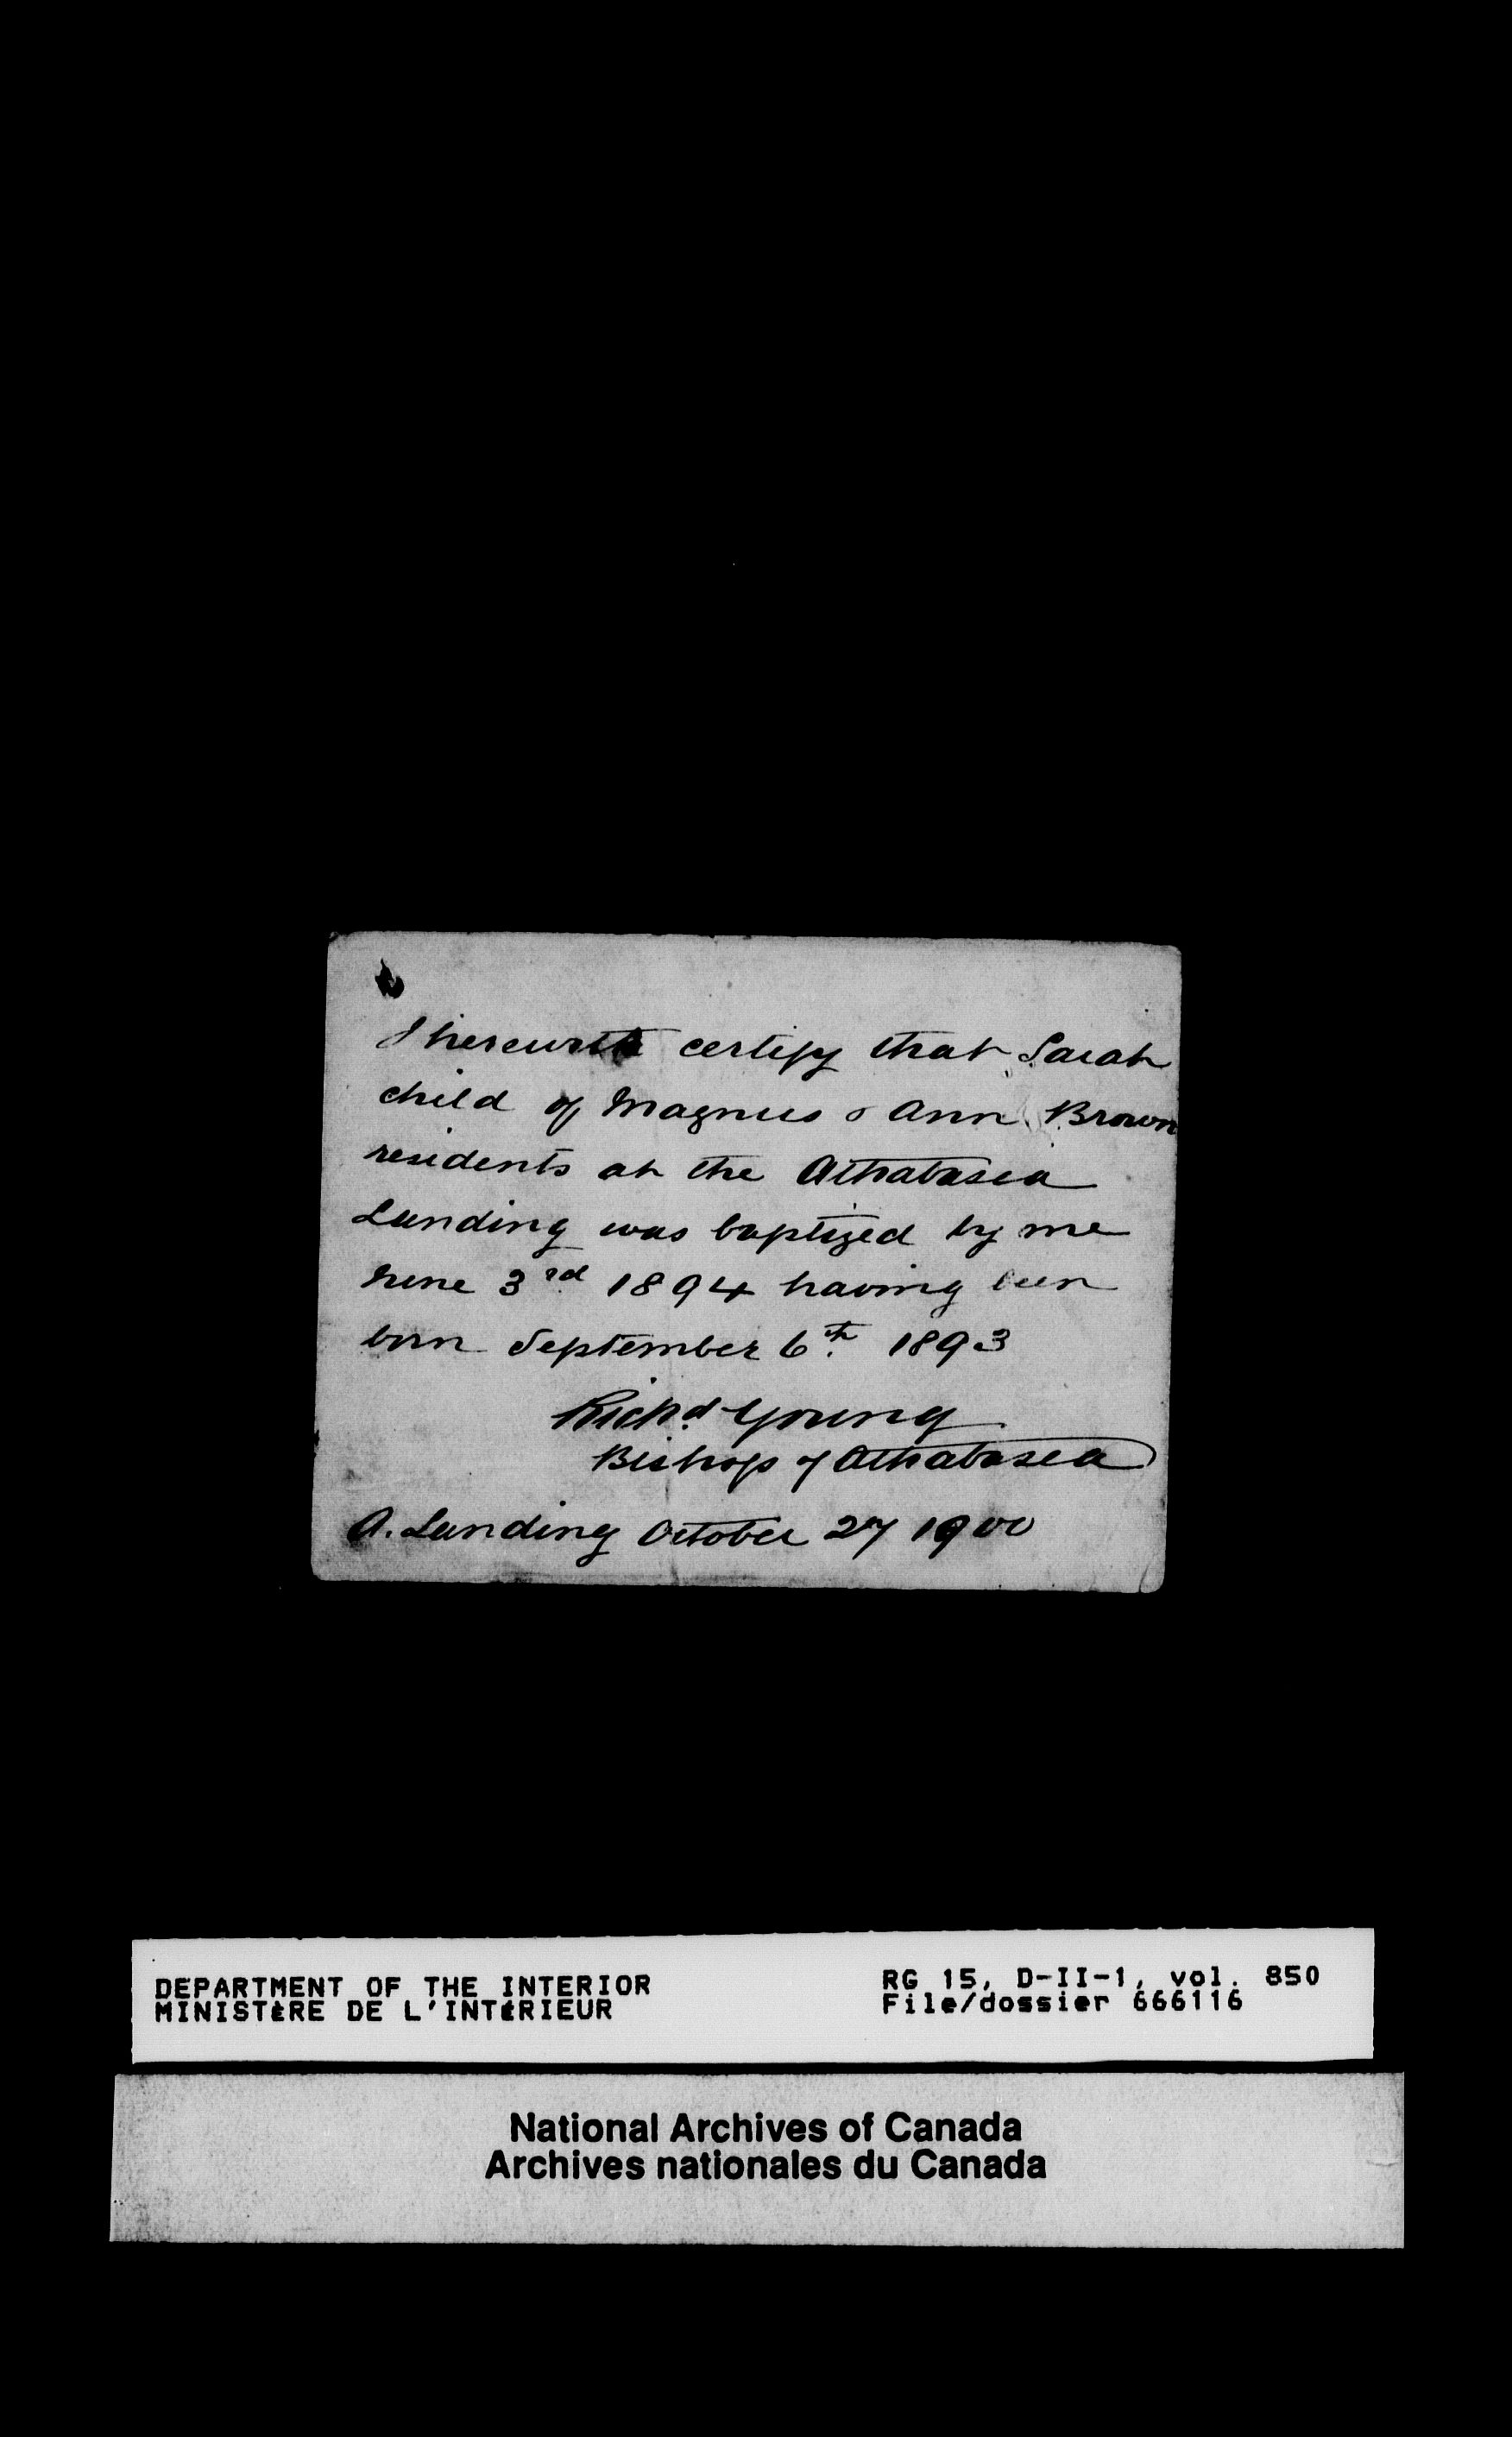 I herewith certify that Sarah
child of Magnus & Ann Brown
residents at the Athabasca
Landing was baptized by me
June 3rd 1894 having been
born September 6th 1893
Richd Young
Bishop of Athabasca
A. Landing October 27 1900
DEPARTMENT OF THE INTERIOR
MINISTÈRE DE L'INTÉRIEUR
RG 15, D-II-1, vol. 850
File/dossier 666116
National Archives of Canada
Archives nationales du Canada